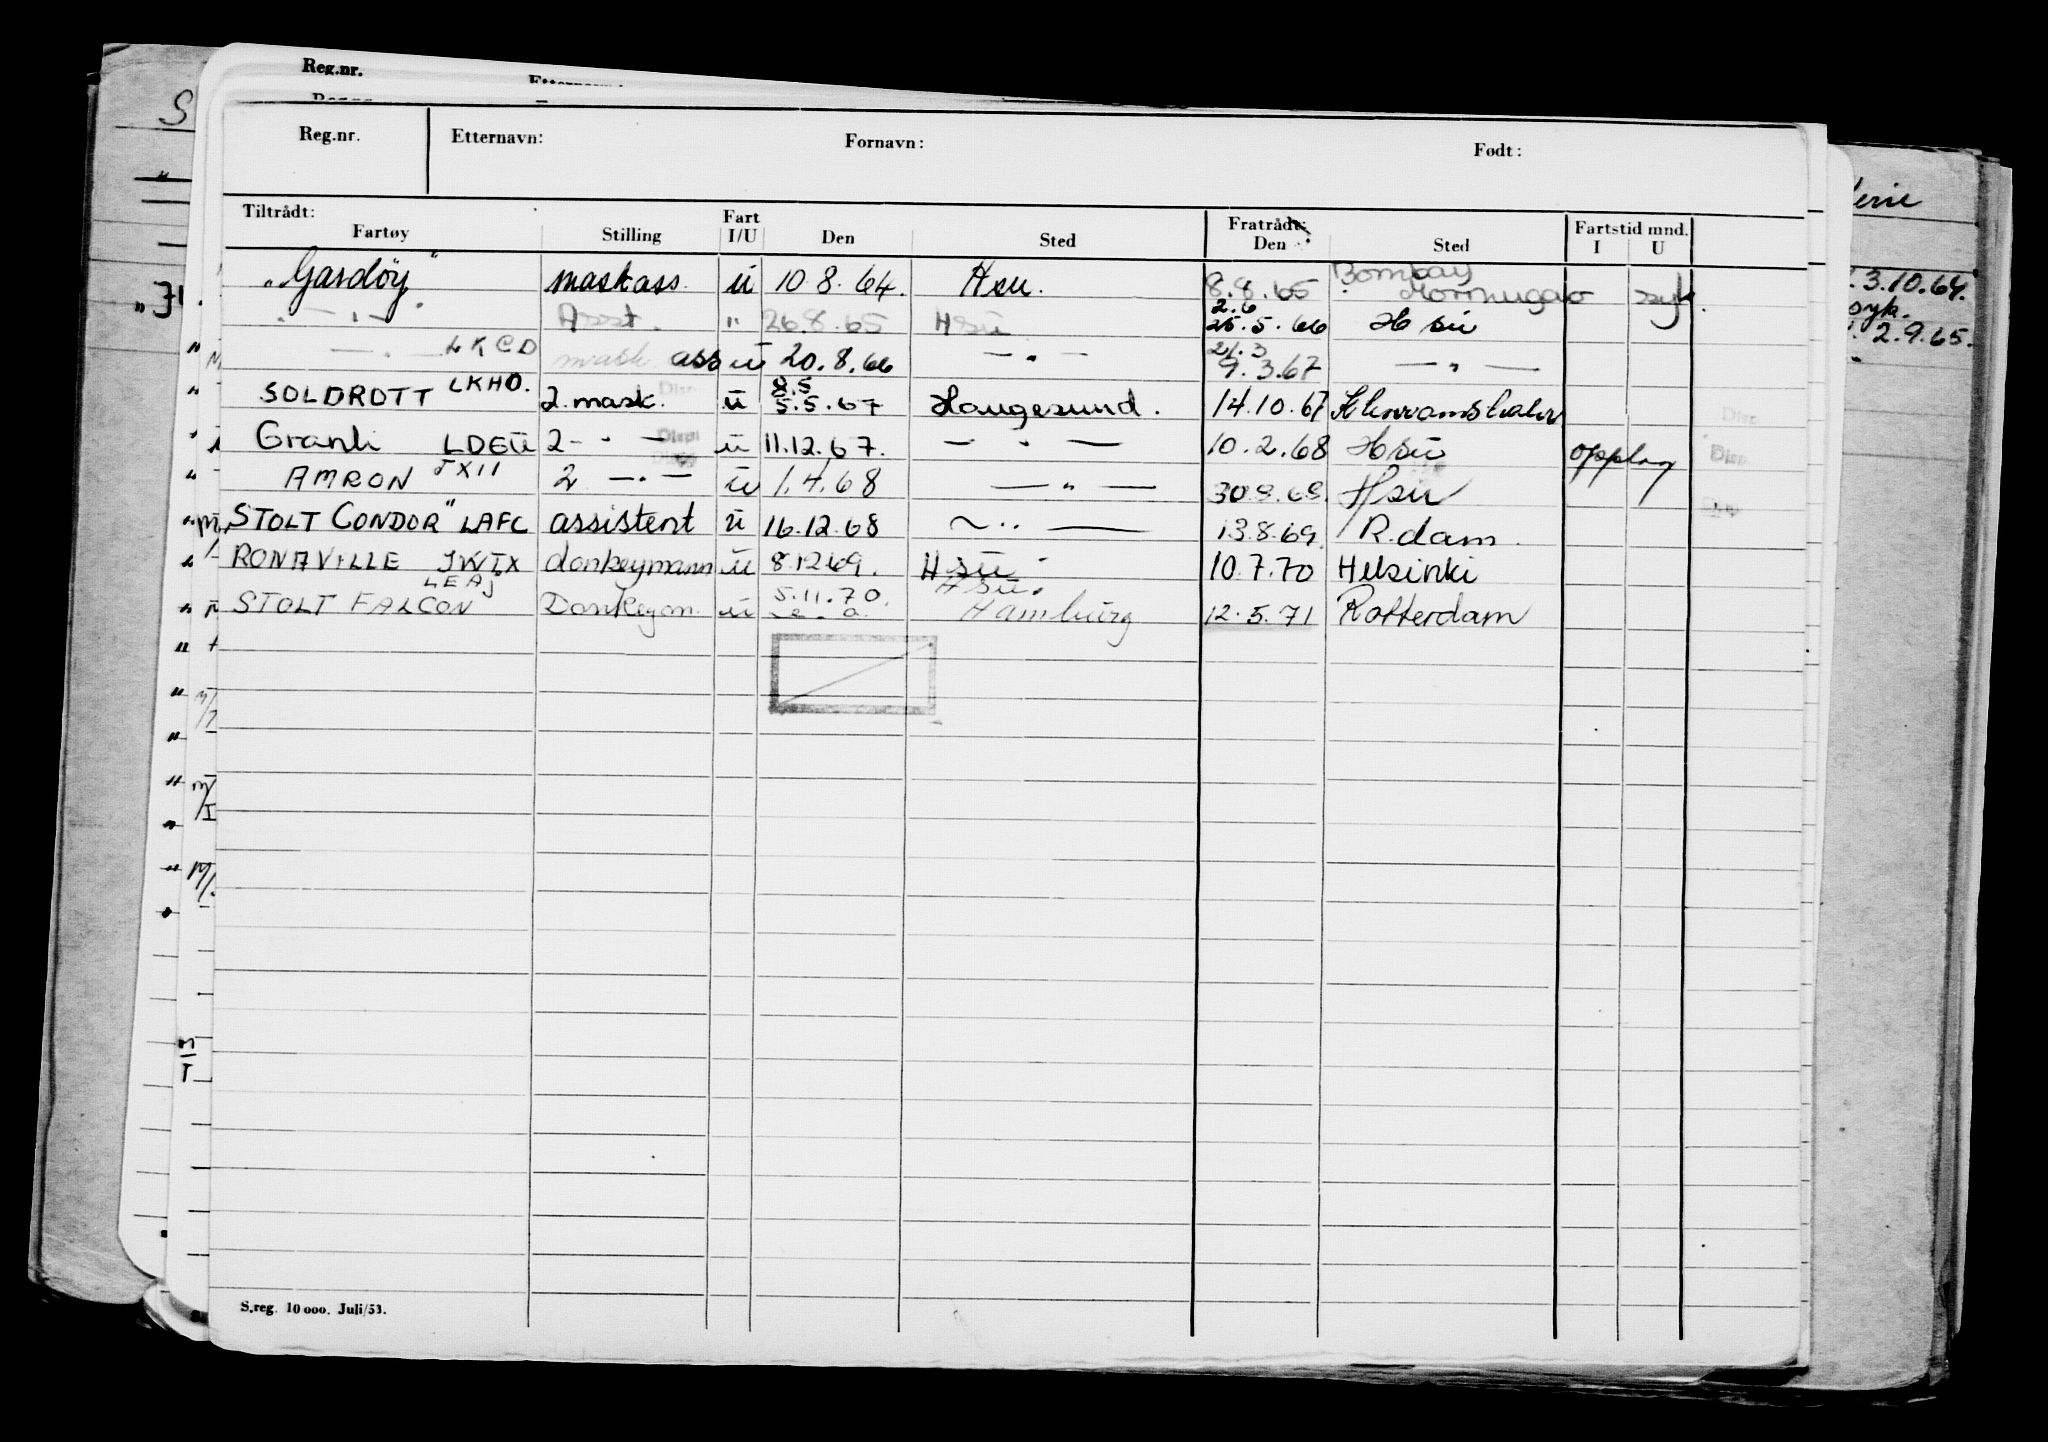 Reg.nr.
Reg.nr. Etternavn: Fornavn: Født:
Tiltrådt: Fartøy Stilling Fart I/U Den Sted Fratrådt: Den Sted Fartstid mnd. I U
„Gardöy" maskass. ü 10.8.64. Hsu. 8.8.65 Bombay Mormugao syk.
" Asst. " 26.8.65 Hsü 2.6 25.5.66 Hsü
— " — LKCD mask ass ü 20.8.66 — " — 21.3 9.3.67 — " —
SOLDROTT LKHO. 2.mask. Disp. ü 8.5 5.5.67 Haugesund. 14.10.67
Granli LDEÜ 2 - " - Disp ü 11.12.67. — " — 10.2.68 Hsü opplag Disp.
AMRON JXII 2 — " — ü 1.4.68 — " — 30.9.68. Hsü
STOLT CONDOR" LAFC assistent ü 16.12.68 ~ " — 13.8.69. R.dam.
RONAVILLE JWTX donkeymann ü 8.12 69. Hsü 10.7.70 Helsinki
STOLT FALCON LEAJ Donkeym. ü 5.11.70. Hsü. Hamburg 12.5.71 Rotterdam
S.reg. 10 000. Juli/53.
3.10.64.
syk.
2.9.65.